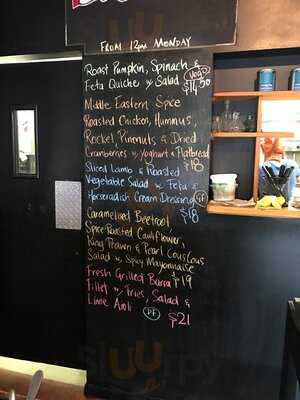 FROM 12PM MONDAY
Roast Pumpkin, Spinach &
Feta Quiche w Salad Vego
$14.50
Middle Eastern Spice
Roasted Chicken, Hummus,
Rocket, Pinenuts & Dried
Cranberries w Yoghurt & Flatbread
$18
Sliced Lamb & Roasted
Vegetable Salad w Feta &
Horseradish Cream Dressing GF
$18
Caramelised Beetroot
Spice Roasted Cauliflower,
King Prawn & Pearl CousCous
Salad w Spicy Mayonnaise
$19
Fresh Grilled Barra
Fillet w Fries, Salad &
Lime Aioli
$21